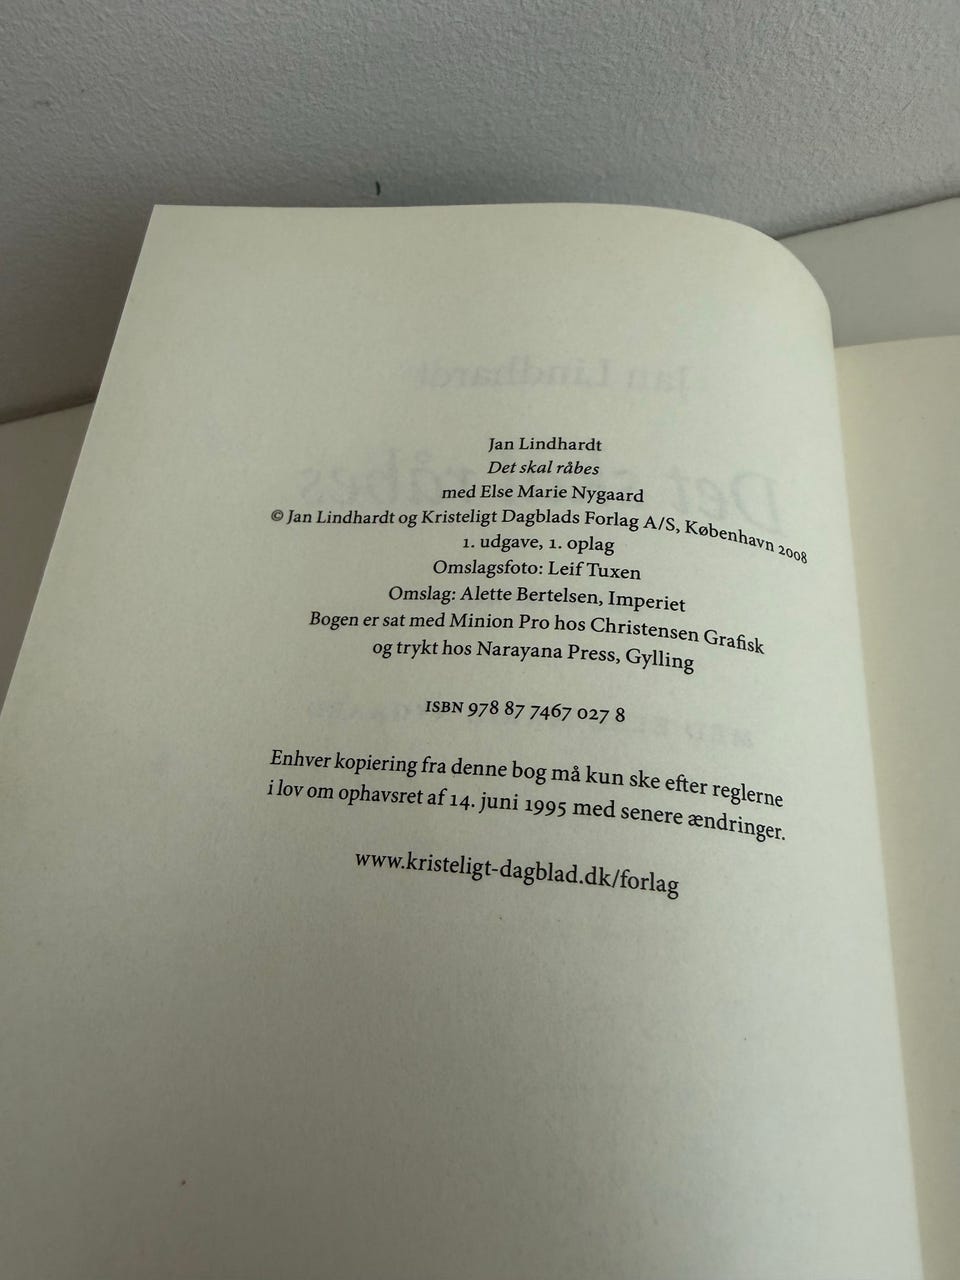 Jan Lindhardt
Det skal råbes
med Else Marie Nygaard
© Jan Lindhardt og Kristeligt Dagblads Forlag A/S, København 2008
1. udgave, 1. oplag
Omslagsfoto: Leif Tuxen
Omslag: Alette Bertelsen, Imperiet
Bogen er sat med Minion Pro hos Christensen Grafisk
og trykt hos Narayana Press, Gylling
ISBN 978 87 7467 027 8
Enhver kopiering fra denne bog må kun ske efter reglerne
i lov om ophavsret af 14. juni 1995 med senere ændringer.
www.kristeligt-dagblad.dk/forlag